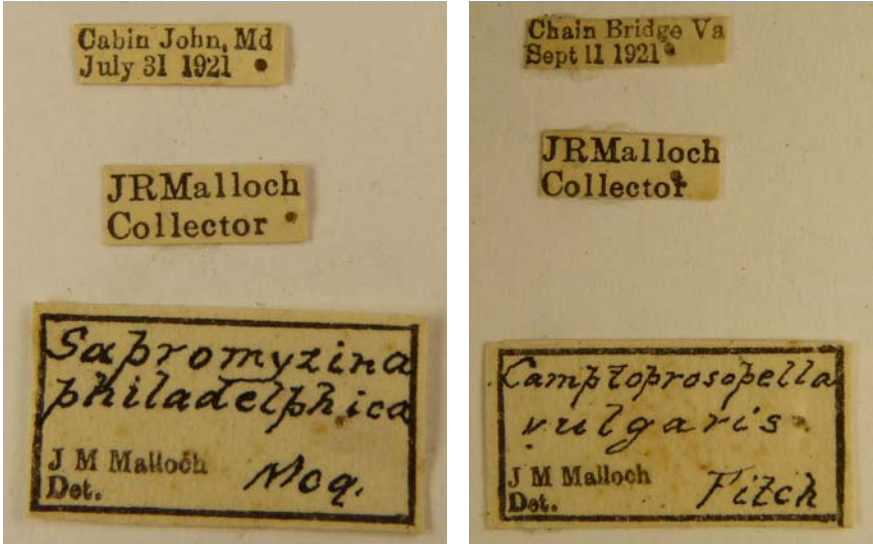 Cabin John, Md
July 31 1921
JRMalloch
Collector
Sapromyzina
philadelphica
J M Malloch
Det.
Mcq.
Chain Bridge Va
Sept 11 1921
JRMalloch
Collector
Camptoprosopella
vulgaris
J M Malloch
Det.
Fitch